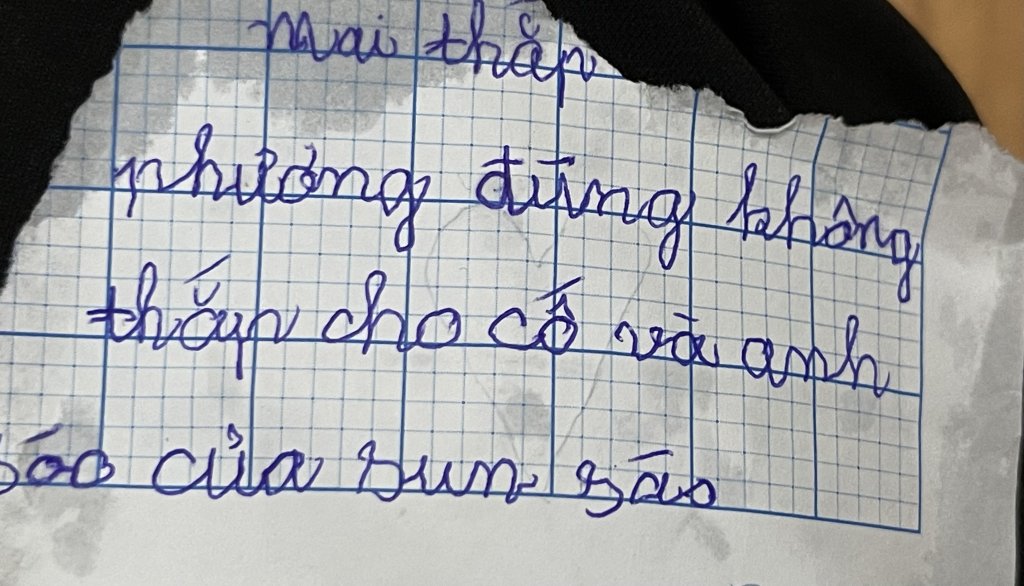 mai thắp
phương đừng không
thắp cho cố và anh
của sun sáo